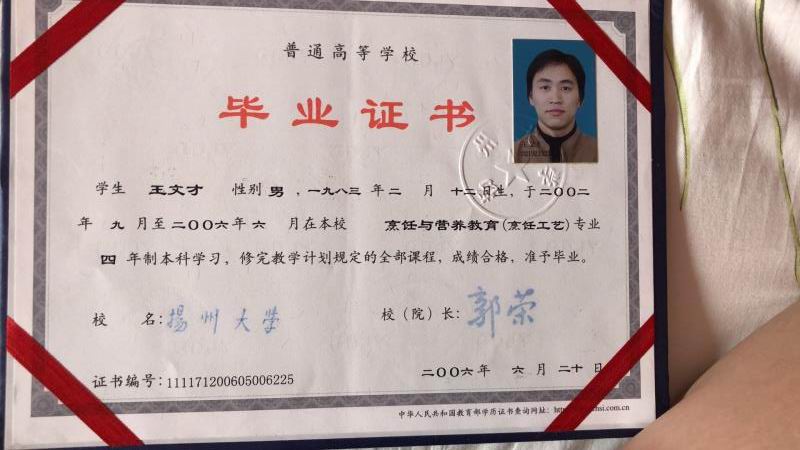 普通高等学校
毕业证书
学生 王文才 性别 男，一九八三年二月十二日生，于二〇〇二
年九月至二〇〇六年六月在本校 烹饪与营养教育(烹饪工艺)专业
四年制本科学习，修完教学计划规定的全部课程，成绩合格，准予毕业。
校 名：揚州大学 校（院）长：郭荣
证书编号：111171200605006225 二〇〇六年 六月二十日
中华人民共和国教育部学历证书查询网址：